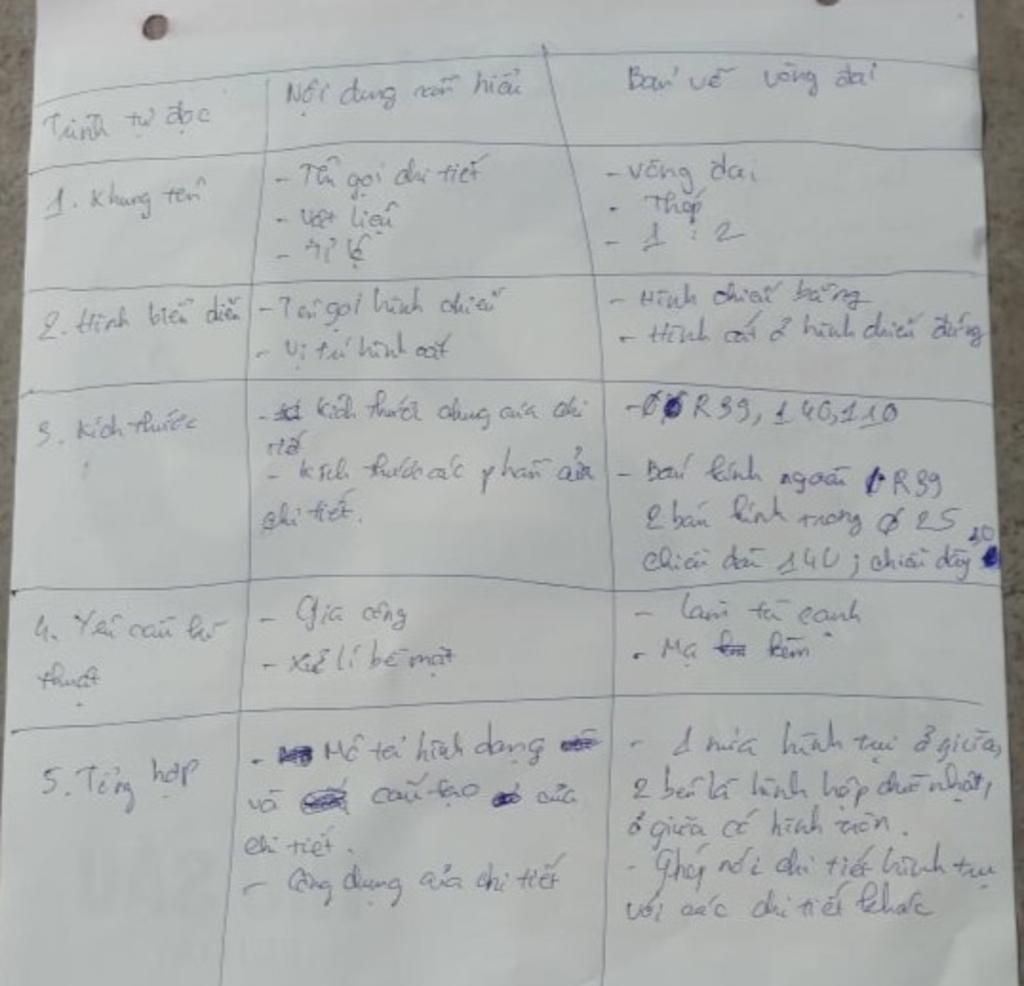 Trình tự đọc
Nội dung cần hiểu
Bản vẽ vòng đai
1. Khung tên
- Tên gọi chi tiết
- Vật liệu
- Tỉ lệ
- Vòng đai
- Thép
- 1 : 2
2. Hình biểu diễn
- Tên gọi hình chiếu
- Vị trí hình cắt
- Hình chiếu bằng
- Hình cắt ở hình chiếu đứng
3. Kích thước
- Kích thước chung của chi
tiết
- Kích thước các phần của
chi tiết.
- R39, 140, 110
- Bán kính ngoài R39
2 bán kính trong ø 25
chiều dài 140; chiều dày 10
4. Yêu cầu kĩ
thuật
- Gia công
- Xử lí bề mặt
- Làm tù cạnh
- Mạ kẽm
5. Tổng hợp
- Mô tả hình dạng
và cấu tạo của
chi tiết.
- Công dụng của chi tiết
- 1 nửa hình trụ ở giữa,
2 bên là hình hộp chữ nhật,
ở giữa có hình tròn.
- Ghép nối chi tiết hình trụ
với các chi tiết khác